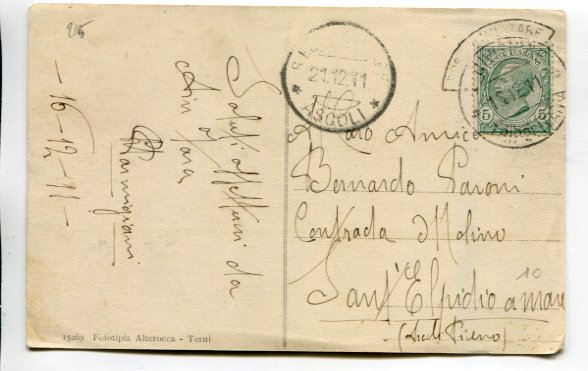 215
- 16-12-11 -
Saluti affettuosi da
Ain Zara
Parmigiani
21.12.11
ASCOLI
5 5
Caro Amico
Bernardo Paroni
Contrada Molino
Sant'Elpidio a mare
(Ascoli Piceno)
10
15269 Fototipia Alterocca - Terni